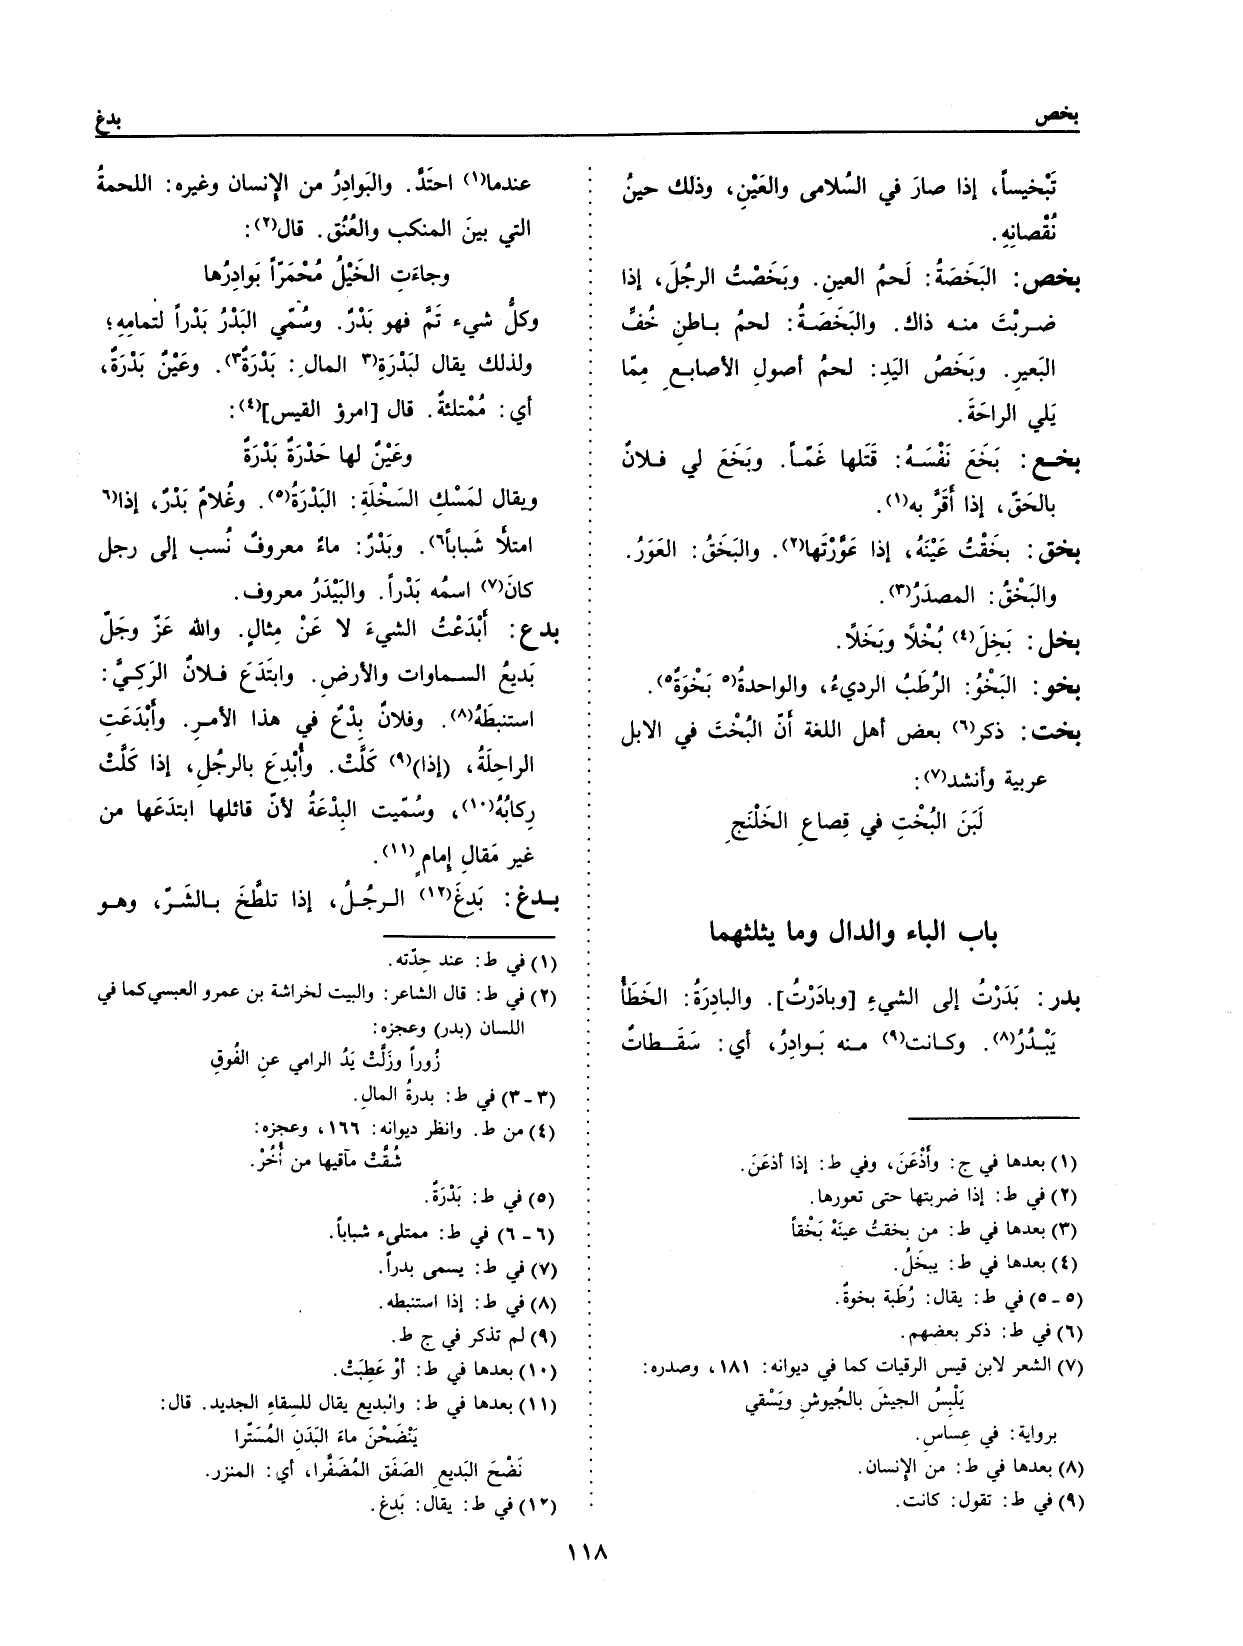 بخص
بدغ
تَبْخيساً، إذا صارَ في السُلامى والعَيْنِ، وذلك حينُ
نُقْصانِهِ.
بخص: البَخَصَةُ: لَحمُ العينِ. وبَخَصْتُ الرجُلَ، إذا
ضربْتَ منه ذاك. والبَخَصَةُ: لحمُ باطنِ خُفِّ
البَعيرِ. وبَخَصُ اليَدِ: لحمُ أصولِ الأصابعِ مِمّا
يَلي الراحَةَ.
بخع: بَخَعَ نَفْسَهُ: قَتَلها غَمّاً. وبَخَعَ لي فلانٌ
بالحَقّ، إذا أَقَرَّ به(١).
بخق: بخَقْتُ عَيْنَهُ، إذا عَوَّرْتَها(٢). والبَخَقُ: العَوَرُ.
والبَخْقُ: المصدَرُ(٣).
بخل: بَخِلَ(٤) بُخْلاً وبَخَلاً.
بخو: البَخْوُ: الرُطَبُ الرديءُ، والواحدةُ(٥ بَخْوَةٌ٥).
بخت: ذكر(٦) بعض أهل اللغة أنّ البُخْتَ في الابل
عربية وأنشد(٧):
لَبَنَ البُخْتِ في قِصاعِ الخَلَنْجِ
باب الباء والدال وما يثلثهما
بدر: بَدَرْتُ إلى الشيءِ [وبادَرْتُ]. والبادِرَةُ: الخَطَأُ
يَبْدُرُ(٨). وكانت(٩) منه بَوادِرُ، أي: سَقَطاتٌ
(١) بعدها في ج: وأَذْعَنَ، وفي ط: إذا أذعَنَ.
(٢) في ط: إذا ضربتها حتى تعورها.
(٣) بعدها في ط: من بخقتُ عينَهُ بَخْقاً
(٤) بعدها في ط: يبخَلُ.
(٥ - ٥) في ط: يقال: رُطَبة بخوةٌ.
(٦) في ط: ذكر بعضهم.
(٧) الشعر لابن قيس الرقيات كما في ديوانه: ١٨١، وصدره:
يَلْبِسُ الجيشَ بالجُيوشِ ويَسْقي
برواية: في عِساسِ.
(٨) بعدها في ط: من الإنسان.
(٩) في ط: تقول: كانت.
عندما(١) احتَدَّ. والبَوادِرُ من الإنسان وغيره: اللحمةُ
التي بينَ المنكب والعُنُق. قال(٢):
وجاءَتِ الخَيْلُ مُحْمَرّاً بَوادِرُها
وكلُّ شيء تَمَّ فهو بَدْرٌ. وسُمّي البَدْرُ بَدْراً لتمامِهِ؛
ولذلك يقال لبَدْرَةِ(٣ المال: بَدْرَةٌ٣). وعَيْنٌ بَدْرَةٌ،
أي: مُمْتلئةٌ. قال [امرؤ القيس](٤):
وعَيْنٌ لها حَدْرَةٌ بَدْرَةٌ
ويقال لمَسْكِ السَخْلَةِ: البَدْرَةُ(٥). وغُلامٌ بَدْرٌ، إذا(٦
امتلأ شَباباً٦). وبَدْرٌ: ماءٌ معروفٌ نُسب إلى رجل
كانَ(٧) اسمُه بَدْراً. والبَيْدَرُ معروف.
بدع: أَبْدَعْتُ الشيءَ لا عَنْ مِثالٍ. والله عَزّ وجَلّ
بَديعُ السماوات والأرضِ. وابتَدَعَ فلانٌ الرَكِيَّ:
استنبَطَهُ(٨). وفلانٌ بِدْعٌ في هذا الأمرِ. وأَبْدَعَتِ
الراحِلَةُ، (إذا)(٩) كَلَّتْ. وأُبْدِعَ بالرجُلِ، إذا كَلَّتْ
رِكابُهُ(١٠)، وسُمّيت البِدْعَةُ لأنّ قائلها ابتدَعَها من
غير مَقالِ إمامٍ(١١).
بدغ: بَدِغَ(١٢) الرجُلُ، إذا تلطَّخَ بالشَرّ، وهو
(١) في ط: عند حِدّته.
(٢) في ط: قال الشاعر: والبيت لخراشة بن عمرو العبسي كما في
اللسان (بدر) وعجزه:
زُوراً وزَلَّتْ يَدُ الرامي عنِ الفُوقِ
(٣ - ٣) في ط: بدرةُ المالِ.
(٤) من ط. وانظر ديوانه: ١٦٦، وعجزه:
شُقَّتْ مآقيها من أُخُرْ.
(٥) في ط: بَدْرَةٌ.
(٦ - ٦) في ط: ممتلىء شباباً.
(٧) في ط: يسمى بدراً.
(٨) في ط: إذا استنبطه.
(٩) لم تذكر في ج ط.
(١٠) بعدها في ط: أوْ عَطِبَتْ.
(١١) بعدها في ط: والبديع يقال للسِقاءِ الجديد. قال:
يَنْضَحْنَ ماءَ البَدَنِ المُسَرّا
نَضْحَ البَديعِ الصَفَق المُصْفَرا، أي: المنزر.
(١٢) في ط: يقال: بَدغ.
١١٨